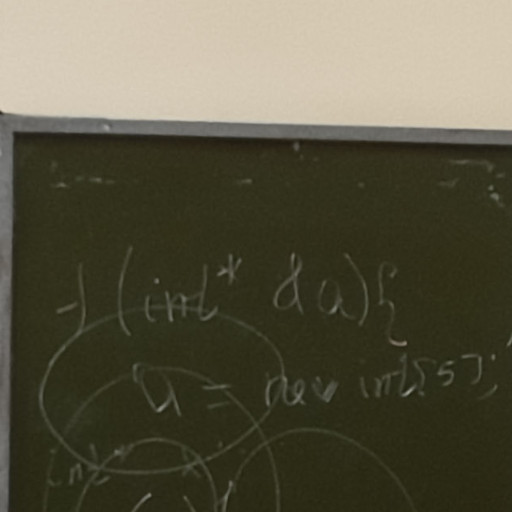 f (int* &a){
a = new int[5];
int* x;